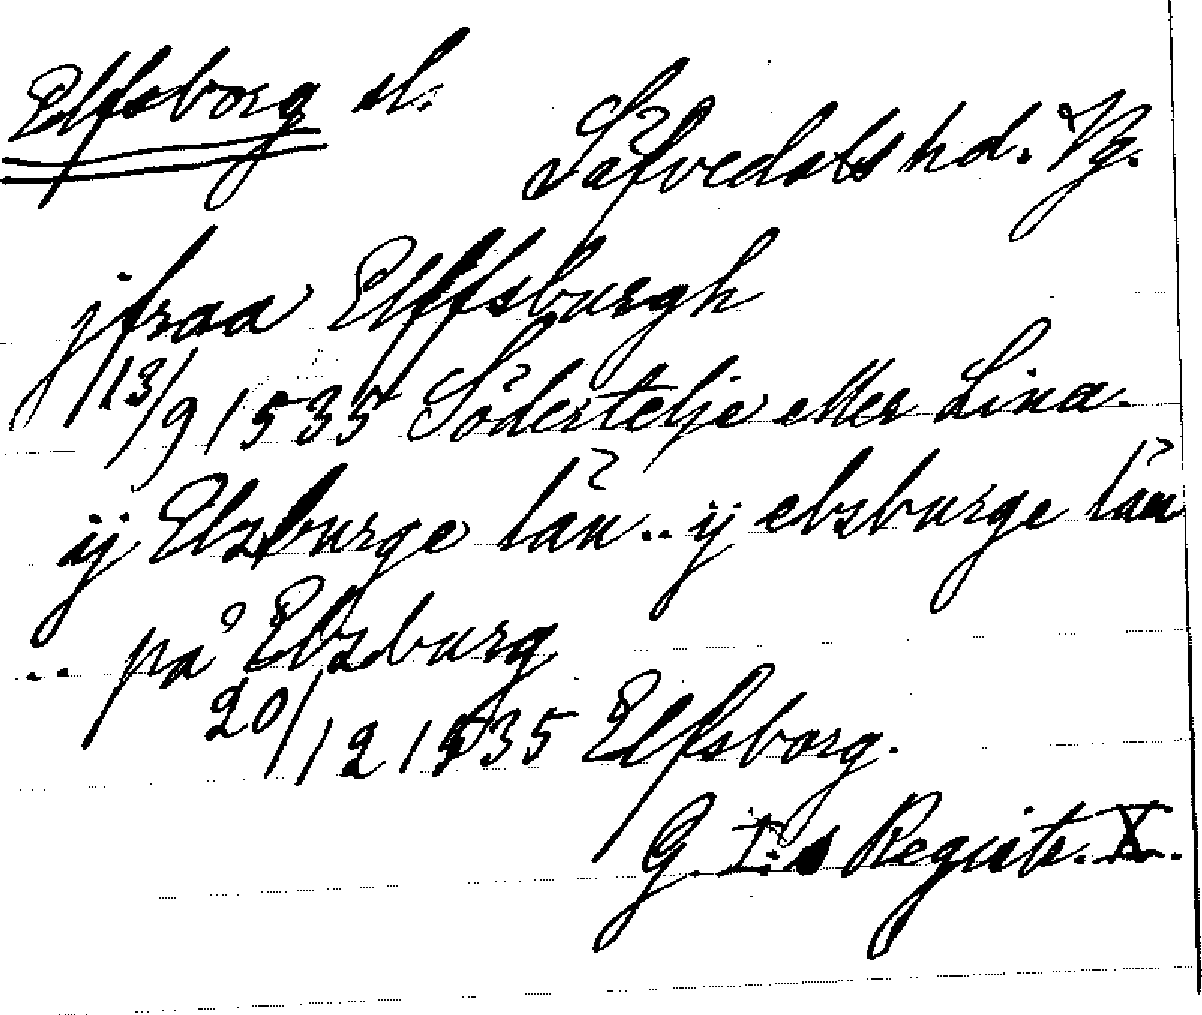 Elfsborg sl.
Säfvedals hd. Vg.
jfraa Elffsburgh
13/9 1535 Södertelje eller Lina.
ij Elzburge län .. ij elzburge län
.. på Elzburg
20/12 1535 Elfsborg.
G. I:s Registr. X.